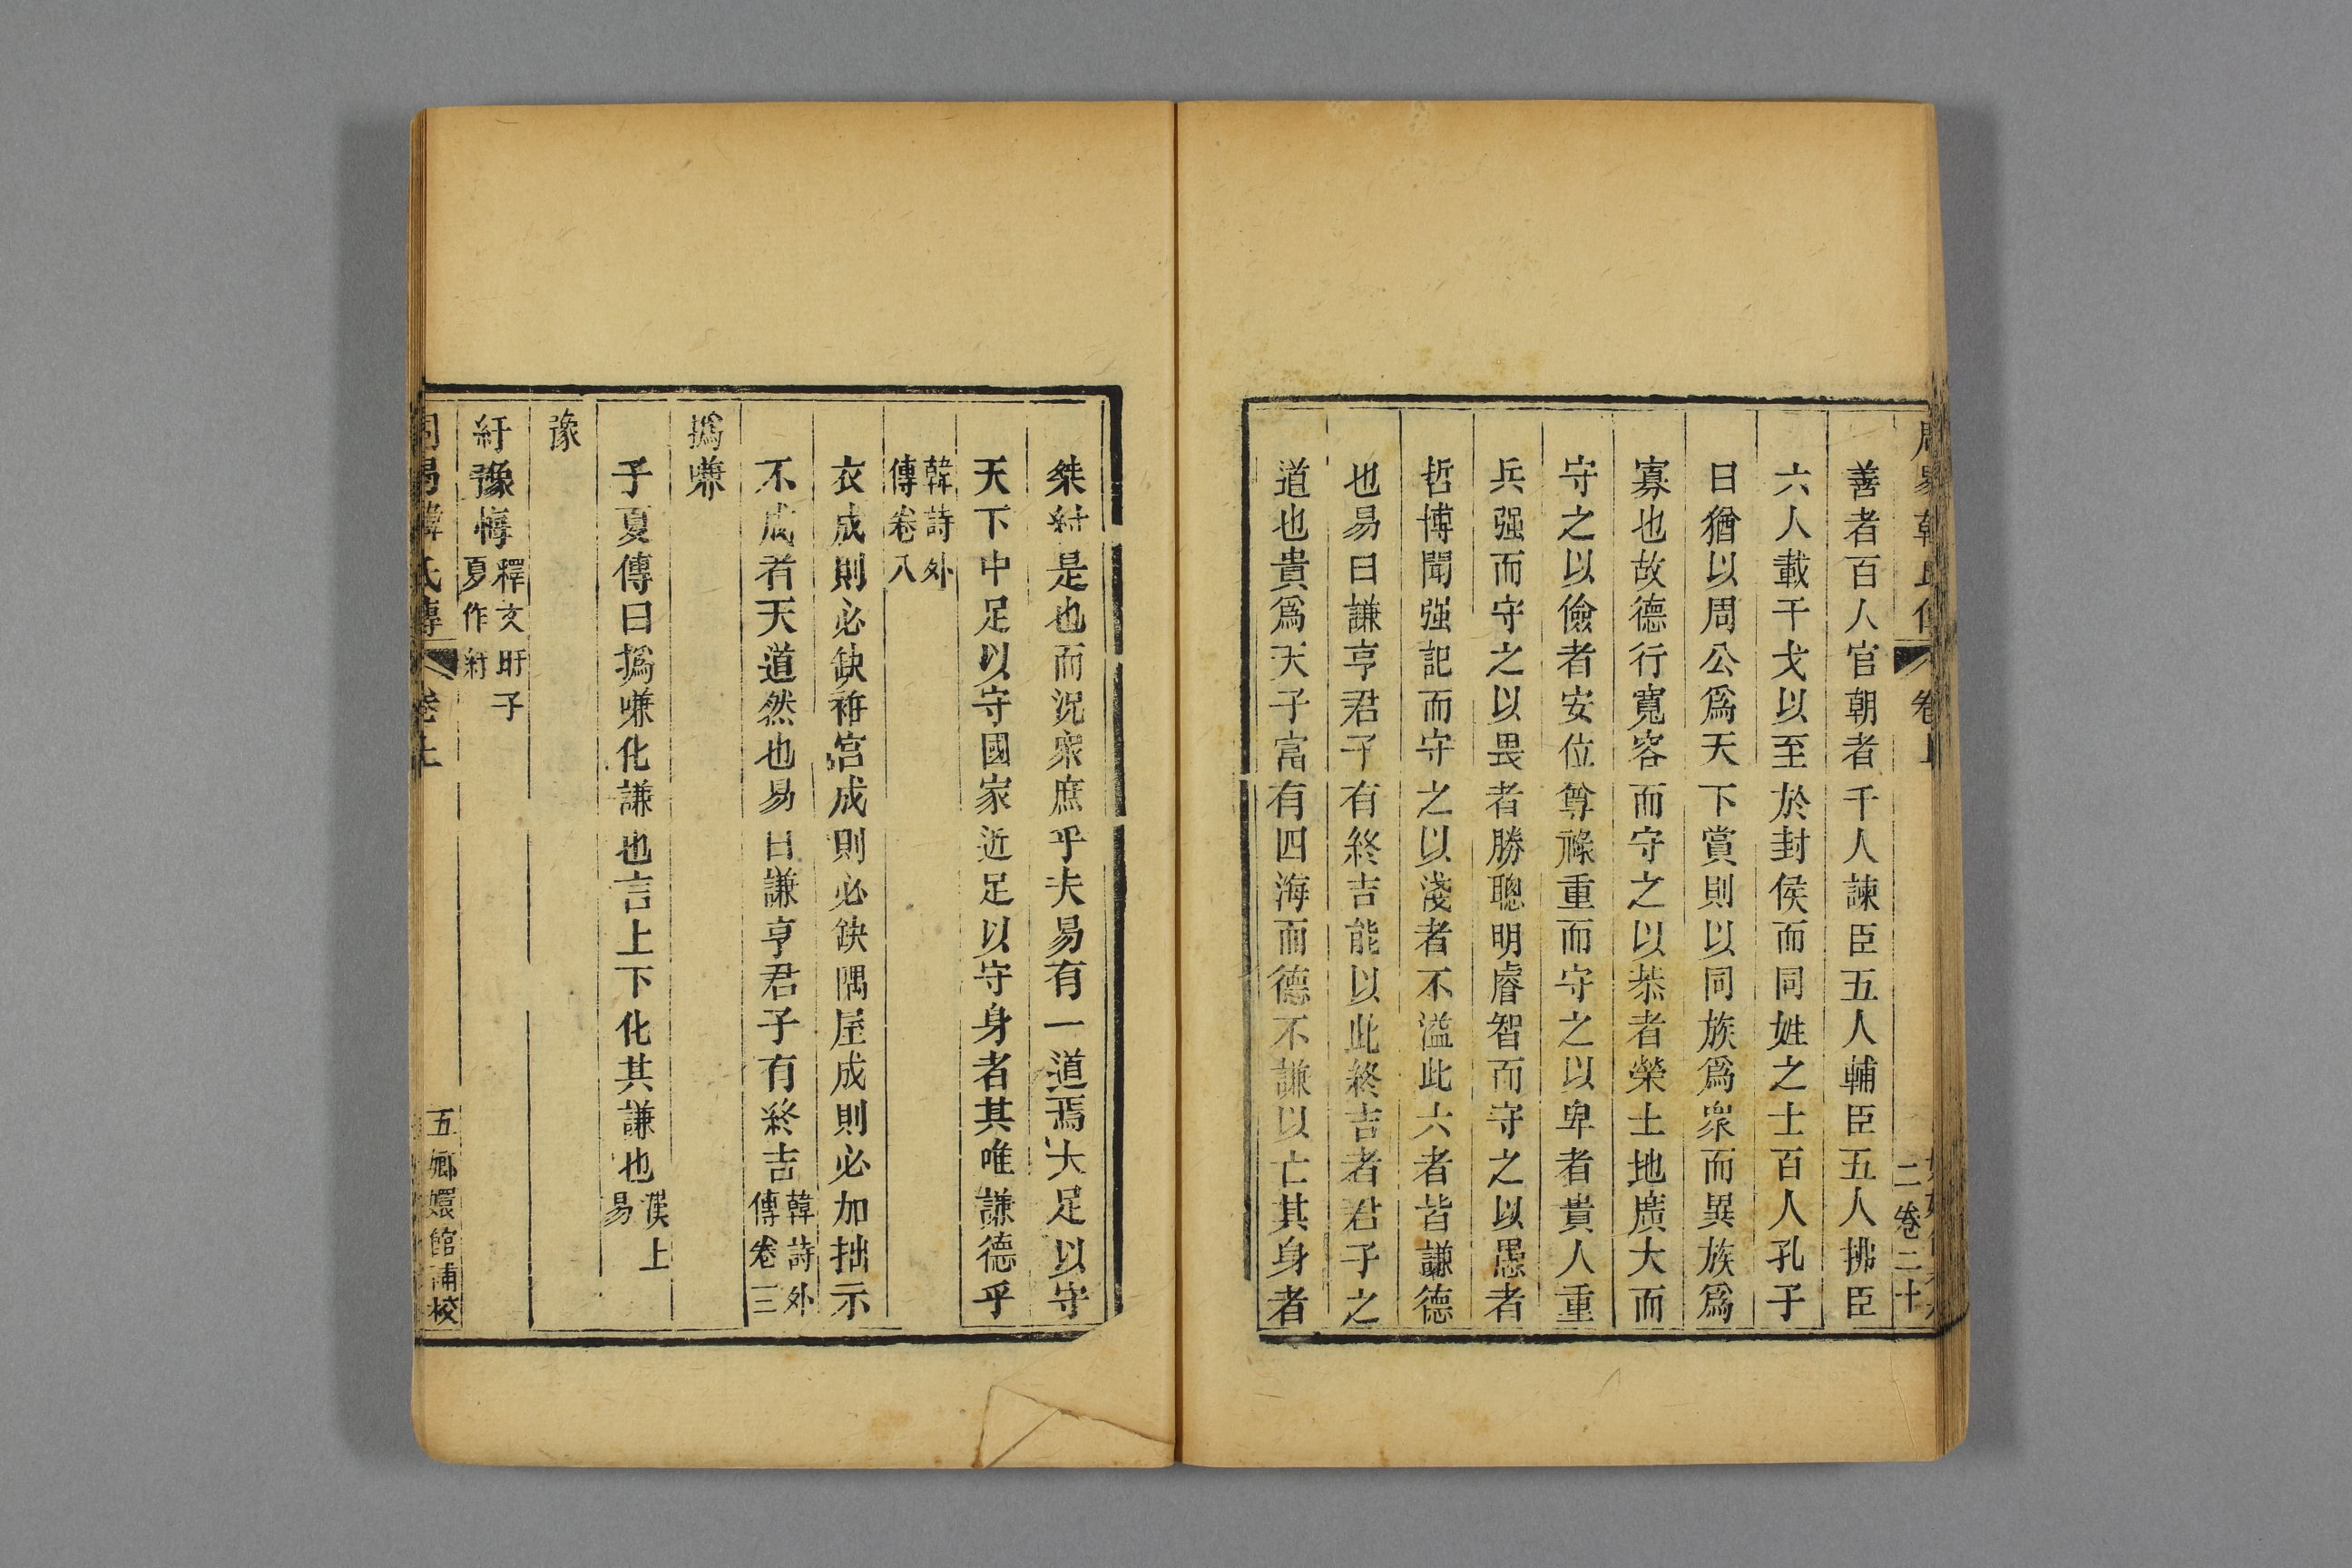 周易韓氏傳 卷上
二卷二十
善者百人官朝者千人諫臣五人輔臣五人拂臣
六人載干戈以至於封侯而同姓之士百人孔子
曰猶以周公爲天下賞則以同族爲衆而異族爲
寡也故德行寬容而守之以恭者榮土地廣大而
守之以儉者安位尊祿重而守之以卑者貴人重
兵强而守之以畏者勝聰明睿智而守之以愚者
哲博聞强記而守之以淺者不溢此六者皆謙德
也易曰謙亨君子有終吉能以此終吉者君子之
道也貴爲天子富有四海而德不謙以亡其身者
桀紂是也而況衆庶乎夫易有一道焉大足以守
天下中足以守國家近足以守身者其唯謙德乎
韓詩外
傳卷八
衣成則必缺袵宮成則必缺隅屋成則必加拙示
不成者天道然也易曰謙亨君子有終吉韓詩外
傳卷三
撝嗛
子夏傳曰撝嗛化謙也言上下化其謙也漢上
易
豫
紆豫悔釋文盱子
夏作紆
周易韓氏傳 卷上
五 嫏嬛館補校